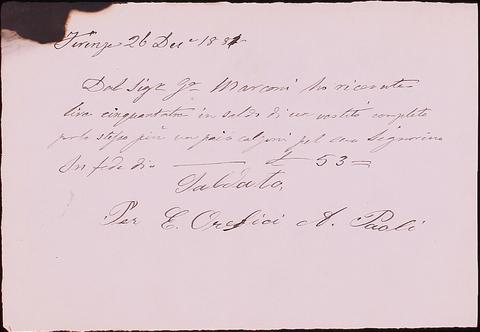 Firenze 26 Dec. 188
Dal Sigr Gn Marconi ho ricevute
lire cinquantatre in saldo di un vestito completo
per lo stesso più un paio calzoni pel suo Signorino
In fede dio £ 53=
Saldato,
Per E. Orefici A. Paoli